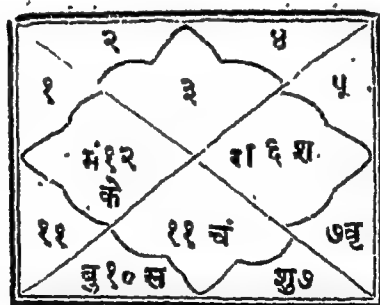 २ ४
१ ३ ५
मं१२ रा ६ श
के
११ ११ चं ७वृ
बु१०स शु७